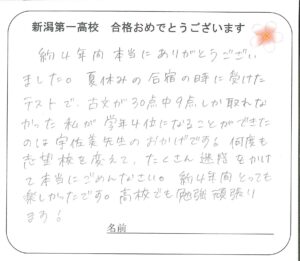 新潟第一高校　合格おめでとうございます
約4年間本当にありがとうござい
ました。夏休みの合宿の時に受けた
テストで、古文が30点中9点しか取れな
かった私が学年4位になることができた
のは宇佐美先生のおかげです。何度も
志望校を変えて、たくさん迷惑をかけ
て本当にごめんなさい。約4年間とっても
楽しかったです。高校でも勉強頑張り
ます!
名前